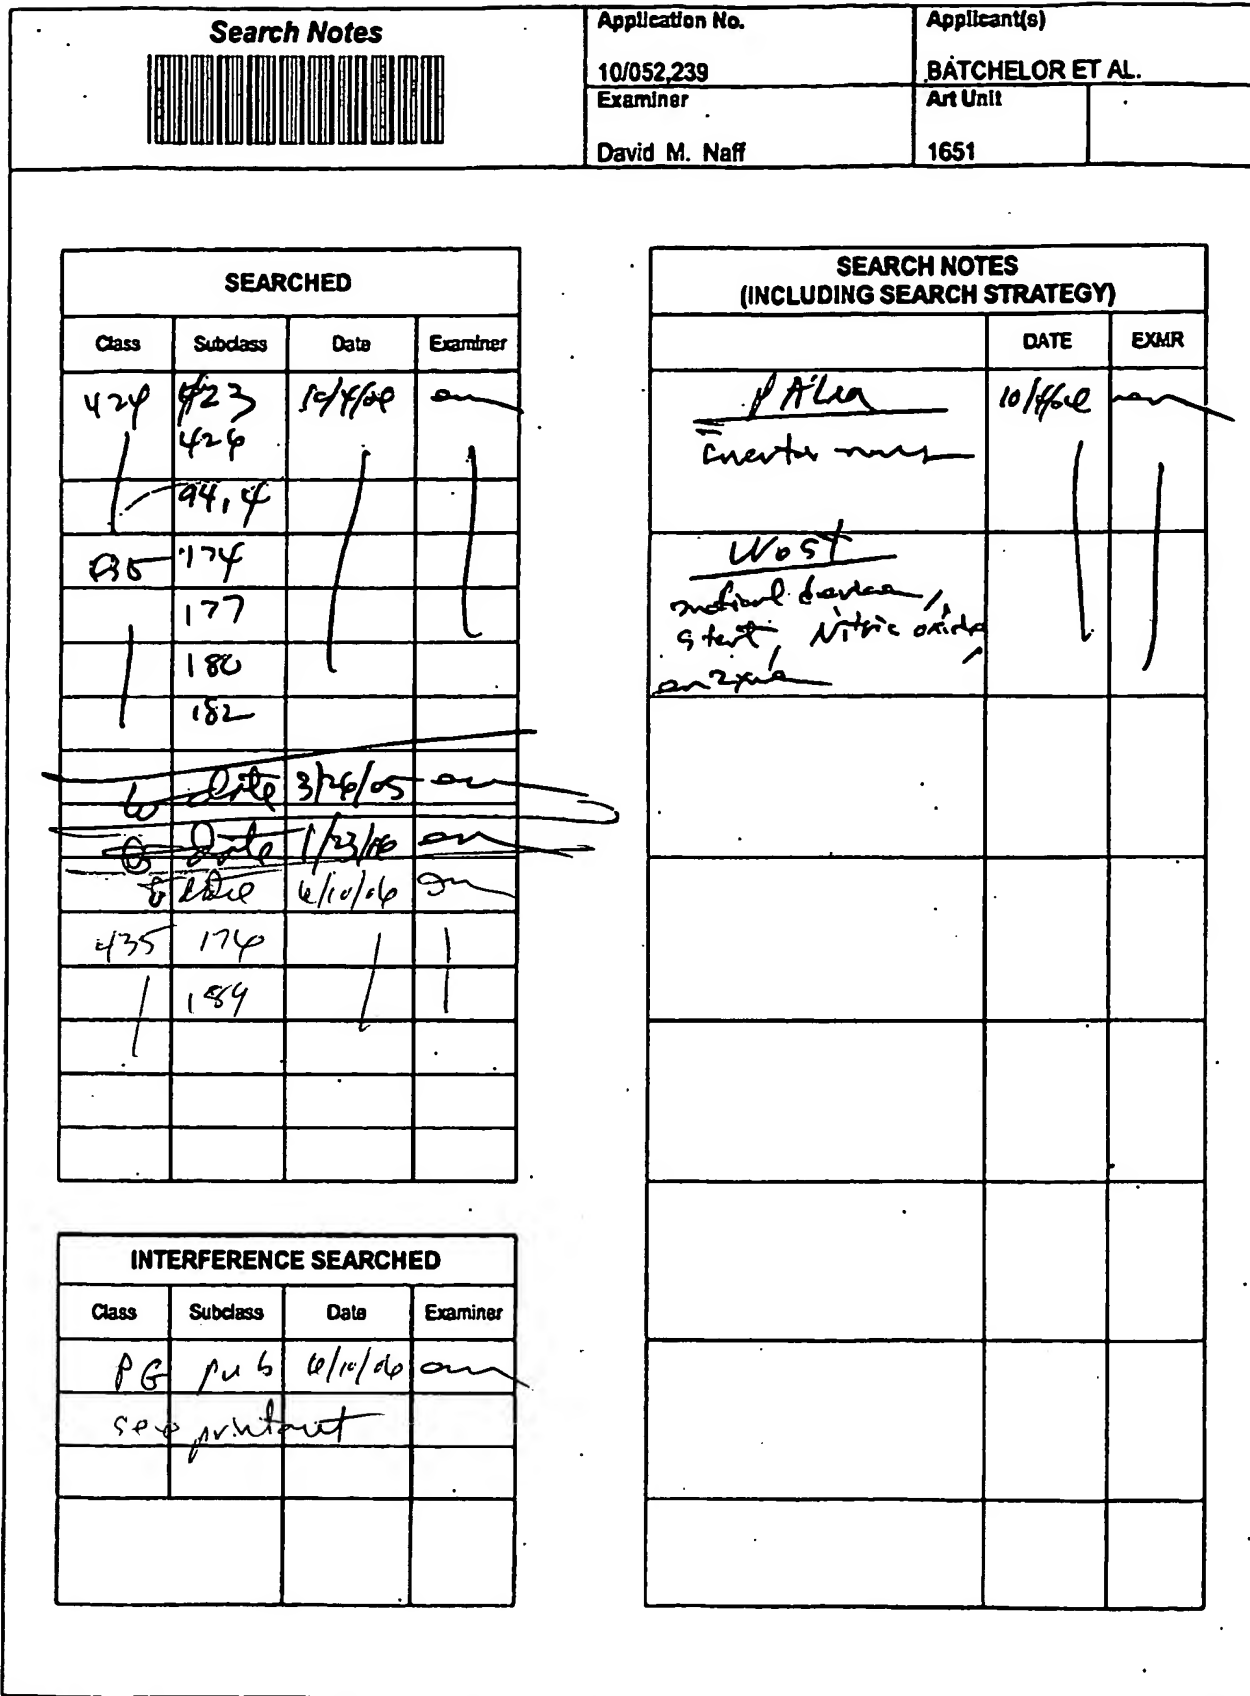 Search Notes
Application No.
10/052,239
Applicant(s)
BATCHELOR ET AL.
Examiner
David M. Naff
Art Unit
1651
SEARCHED
Class Subclass Date Examiner
424 423
426
94.4
435 174
177
180
182
date 3/26/05
date 1/23/06
6/10/06
435 176
189
INTERFERENCE SEARCHED
Class Subclass Date Examiner
PG pub 6/10/06
see printout
SEARCH NOTES
(INCLUDING SEARCH STRATEGY)
DATE EXMR
PALM
inventor names
West
medical device,
stent, Nitric oxide,
enzyme